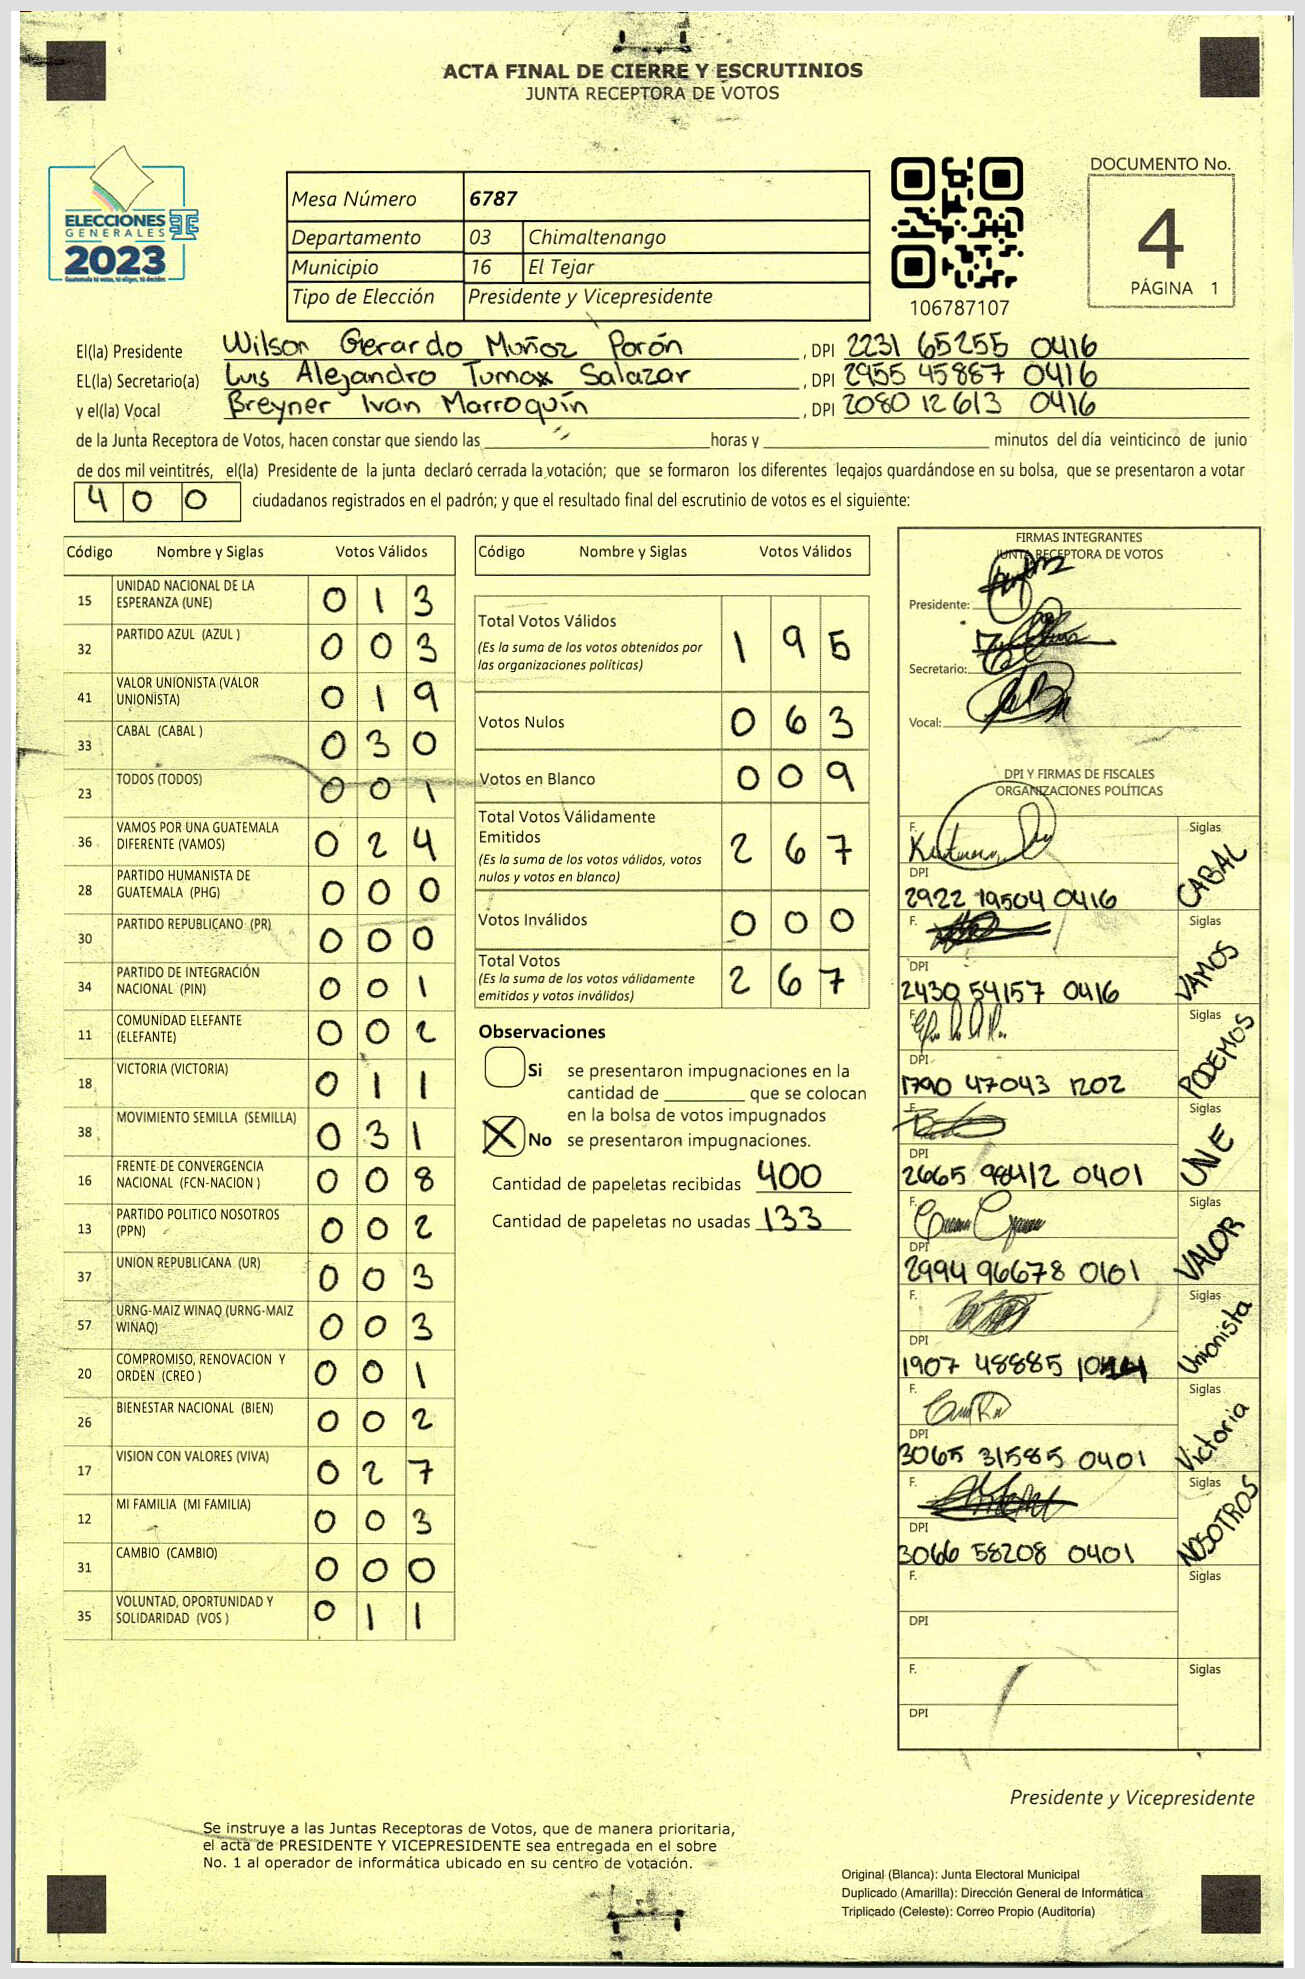 ACTA FINAL DE CIERRE Y ESCRUTINIOS
JUNTA RECEPTORA DE VOTOS
ELECCIONES
GENERALES
2023
Mesa Número 6787
Departamento 03 Chimaltenango
Municipio 16 El Tejar
Tipo de Elección Presidente y Vicepresidente
106787107
DOCUMENTO No.
4
PÁGINA 1
El(la) Presidente Wilson Gerardo Muñoz Porón , DPI 2231 65255 0416
EL(la) Secretario(a) Luis Alejandro Tumax Salazar , DPI 2955 45887 0416
y el(la) Vocal Breyner Ivan Marroquín , DPI 2080 12613 0416
de la Junta Receptora de Votos, hacen constar que siendo las horas y minutos del día veinticinco de junio
de dos mil veintitrés, el(la) Presidente de la junta declaró cerrada la votación; que se formaron los diferentes legajos guardándose en su bolsa, que se presentaron a votar
400 ciudadanos registrados en el padrón; y que el resultado final del escrutinio de votos es el siguiente:
Código Nombre y Siglas Votos Válidos
15 UNIDAD NACIONAL DE LA ESPERANZA (UNE) 013
32 PARTIDO AZUL (AZUL ) 003
41 VALOR UNIONISTA (VALOR UNIONISTA) 019
33 CABAL (CABAL ) 030
23 TODOS (TODOS) 001
36 VAMOS POR UNA GUATEMALA DIFERENTE (VAMOS) 024
28 PARTIDO HUMANISTA DE GUATEMALA (PHG) 000
30 PARTIDO REPUBLICANO (PR) 000
34 PARTIDO DE INTEGRACIÓN NACIONAL (PIN) 001
11 COMUNIDAD ELEFANTE (ELEFANTE) 002
18 VICTORIA (VICTORIA) 011
38 MOVIMIENTO SEMILLA (SEMILLA) 031
16 FRENTE DE CONVERGENCIA NACIONAL (FCN-NACION ) 008
13 PARTIDO POLITICO NOSOTROS (PPN) 002
37 UNION REPUBLICANA (UR) 003
57 URNG-MAIZ WINAQ (URNG-MAIZ WINAQ) 003
20 COMPROMISO, RENOVACION Y ORDEN (CREO ) 001
26 BIENESTAR NACIONAL (BIEN) 002
17 VISION CON VALORES (VIVA) 027
12 MI FAMILIA (MI FAMILIA) 003
31 CAMBIO (CAMBIO) 000
35 VOLUNTAD, OPORTUNIDAD Y SOLIDARIDAD (VOS ) 011
Código Nombre y Siglas Votos Válidos
Total Votos Válidos 195
(Es la suma de los votos obtenidos por
las organizaciones políticas)
Votos Nulos 063
Votos en Blanco 009
Total Votos Válidamente
Emitidos 267
(Es la suma de los votos válidos, votos
nulos y votos en blanco)
Votos Inválidos 000
Total Votos 267
(Es la suma de los votos válidamente
emitidos y votos inválidos)
Observaciones
Si se presentaron impugnaciones en la
cantidad de que se colocan
en la bolsa de votos impugnados
X No se presentaron impugnaciones.
Cantidad de papeletas recibidas 400
Cantidad de papeletas no usadas 133
FIRMAS INTEGRANTES
JUNTA RECEPTORA DE VOTOS
Presidente:
Secretario:
Vocal:
DPI Y FIRMAS DE FISCALES
ORGANIZACIONES POLÍTICAS
F. Siglas CABAL
DPI
2922 19504 0416
F. Siglas VAMOS
DPI
2430 54157 0416
F. Siglas PODEMOS
DPI
1790 47043 1202
F. Siglas UNE
DPI
2665 98412 0401
F. Siglas VALOR
DPI
2994 96678 0101
F. Siglas Unionista
DPI
1907 48885
F. Siglas Victoria
DPI
3065 31585 0401
F. Siglas NOSOTROS
DPI
3066 58208 0401
F. Siglas
DPI
F. Siglas
DPI
Presidente y Vicepresidente
Se instruye a las Juntas Receptoras de Votos, que de manera prioritaria,
el acta de PRESIDENTE Y VICEPRESIDENTE sea entregada en el sobre
No. 1 al operador de informática ubicado en su centro de votación.
Original (Blanca): Junta Electoral Municipal
Duplicado (Amarilla): Dirección General de Informática
Triplicado (Celeste): Correo Propio (Auditoría)